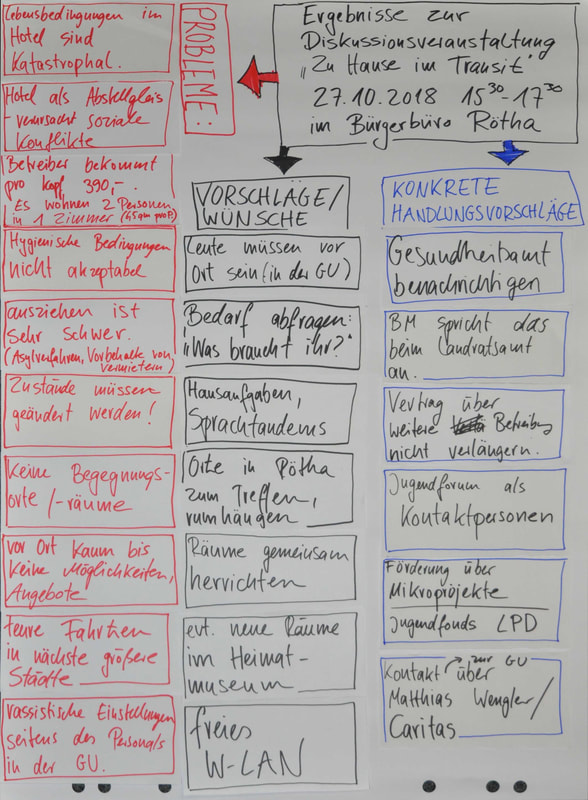 Ergebnisse zur
Diskussionsveranstaltung
„Zu Hause im Transit"
27.10.2018 15³⁰-17³⁰
im Bürgerbüro Rötha
PROBLEME:
Lebensbedingungen im
Hotel sind
Katastrophal.
Hotel als Abstellgleis
- verursacht soziale
Konflikte
Betreiber bekommt
pro Kopf 390,-.
Es wohnen 2 Personen
in 1 Zimmer (45qm pro P.)
Hygienische Bedingungen
nicht akzeptabel
ausziehen ist
sehr schwer.
(Asylverfahren, Vorbehalte von
Vermietern)
Zustände müssen
geändert werden!
Keine Begegnungs-
orte/-räume
vor Ort kaum bis
keine Möglichkeiten,
Angebote
teure Fahrten
in nächste größere
Städte
rassistische Einstellungen
seitens des Personals
in der GU.
VORSCHLÄGE/
WÜNSCHE
Leute müssen vor
Ort sein (in der GU)
Bedarf abfragen:
„Was braucht ihr?"
Hausaufgaben,
Sprachtandems
Orte in Rötha
zum Treffen,
rumhängen
Räume gemeinsam
herrichten
evt. neue Räume
im Heimat-
museum
freies
W-LAN
KONKRETE
HANDLUNGSVORSCHLÄGE
Gesundheitsamt
benachrichtigen
BM spricht das
beim Landratsamt
an.
Vertrag über
weitere Betreibung
nicht verlängern.
Jugendforum als
Kontaktpersonen
Förderung über
Mikroprojekte
Jugendfonds LPD
Kontakt zur GU über
Matthias Wengler/
Caritas